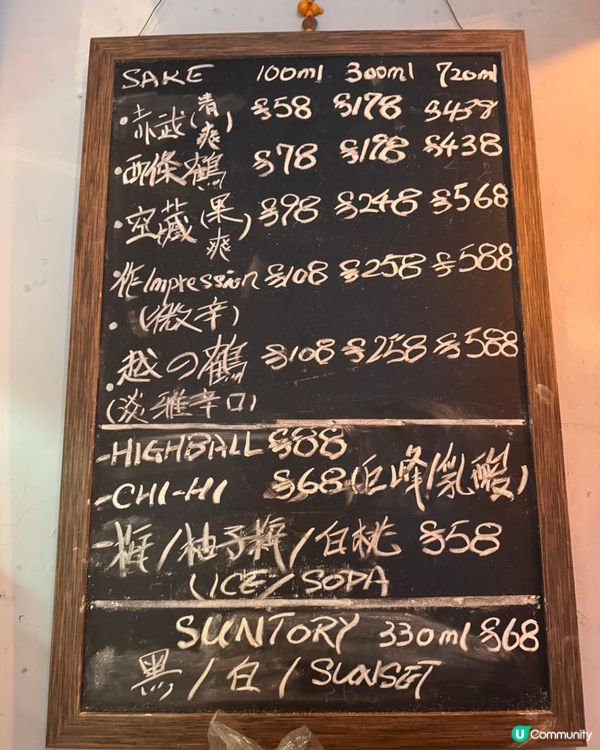 SAKE 100ml 300ml 720ml
·赤武(清爽) $58 $178 $438
·西條鶴 $78 $198 $438
·空藏(果爽) $98 $248 $568
·作Impression $108 $258 $588
(微辛)
·越の鶴 $108 $258 $588
(淡雅辛口)
-HIGHBALL $88
-CHI-HI $68(巨峰/乳酸)
-梅/柚子梅/白桃 $58
(ICE/SODA
SUNTORY 330ml $68
黑/白/SUNSET
U Community